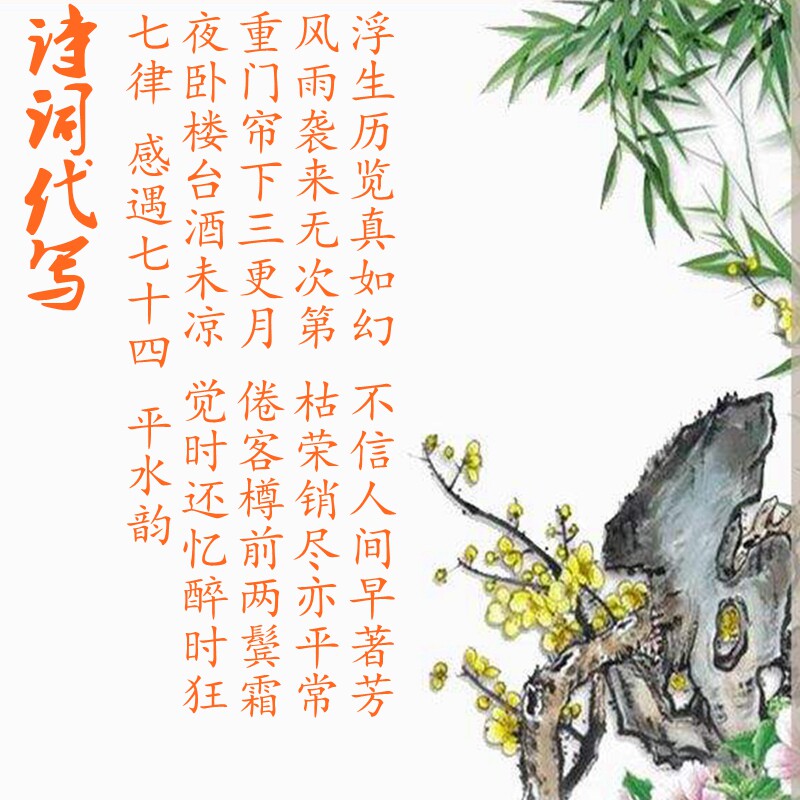 诗词代写
七律 感遇七十四 平水韵
夜卧楼台酒未凉 觉时还忆醉时狂
重门帘下三更月 倦客樽前两鬓霜
风雨袭来无次第 枯荣销尽亦平常
浮生历览真如幻 不信人间早著芳